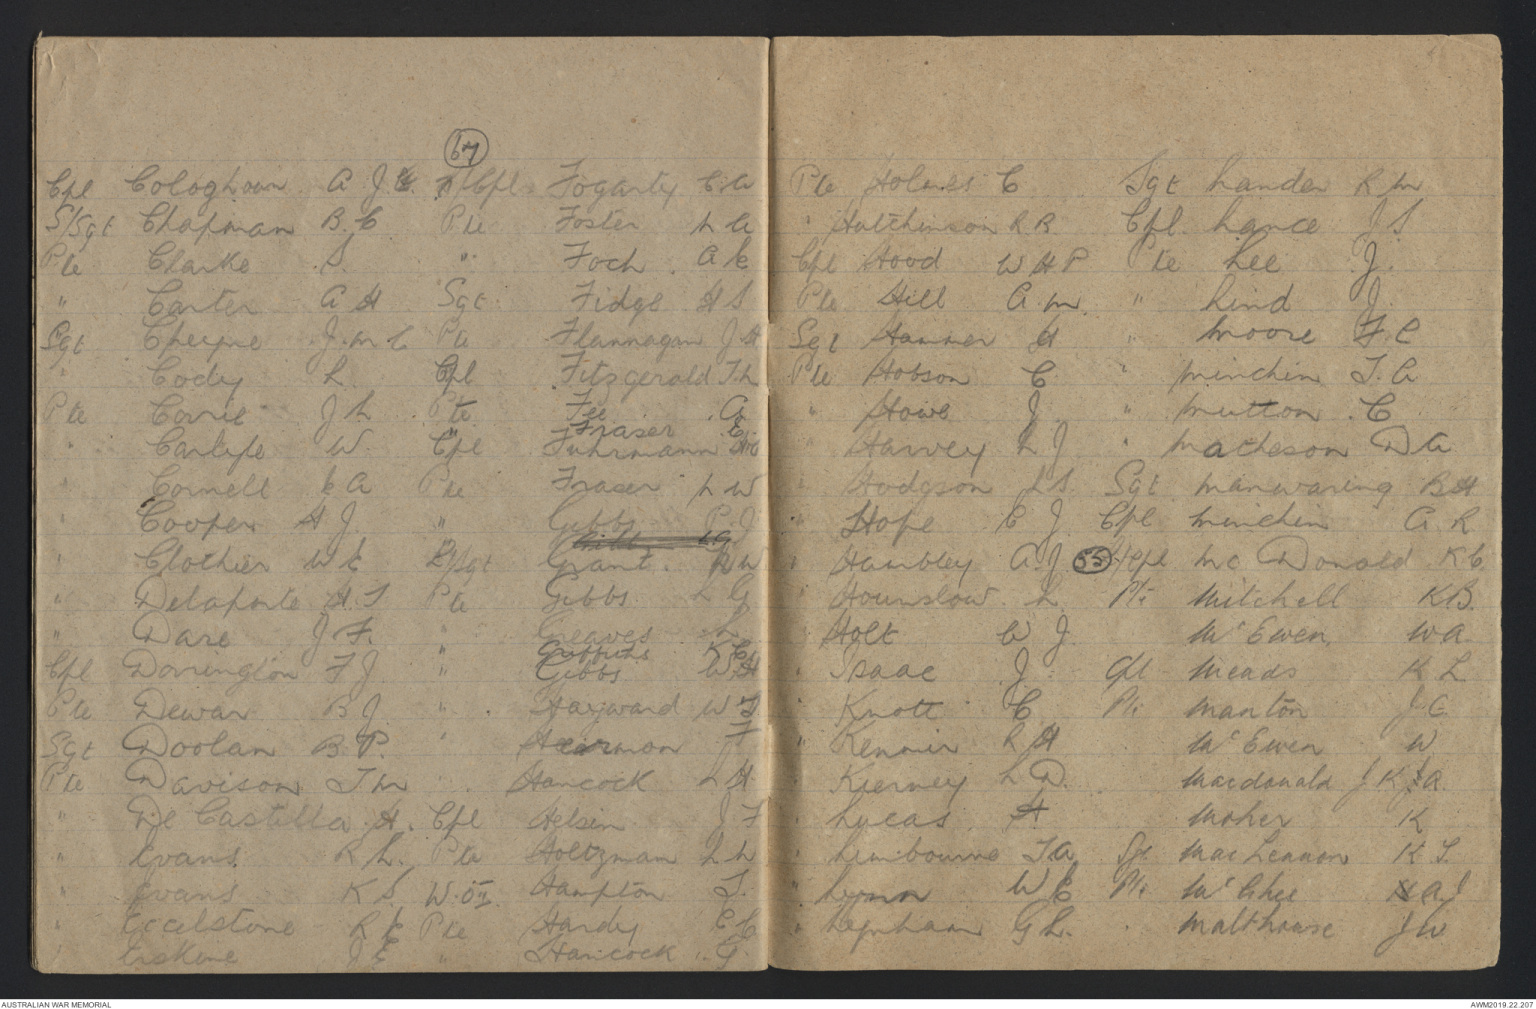 67
Cpl Cologhoun A J
S/Sgt Chapman B. C
Pte Clarke S.
" Carter A H
Sgt Cheyne J. M C
" Cody L
Pte Corrie J L
" Carlyle W.
" Cornell E A
" Cooper A J
" Clothier W E
" Delaporte A. J
" Dare J F.
Cpl Dorrington F J
Pte Dewar B J
Sgt Doolan B P.
Pte Davison T M
" De Castella H.
" Evans R L.
" Evans K S
" Eccelstone R E
" Erskine J E
Cpl Fogarty C A
Pte Foster L A
" Foch A E
Sgt Fidge H S
Pte Flannagan J H
Cpl Fitzgerald T L
Pte Fee A
" Fraser E.
Cpl Fuhrmann
Pte Fraser L W
" Gibbs P J
Grant.
Pte Gibbs L G
" Greaves L
" Griffiths
Gibbs W H
" Hayward W J
" Hearmon F
Hancock L H
Cpl Helsin J F
Pte Holtzman L L
W.O II Hampton J.
Pte Hardy E C
" Hancock G.
Pte Holmes C
" Hutchinson R R
Cpl Hood W H P
Pte Hill A. M.
Sgt Hammer H
Pte Hobson C.
" Howe J.
Harvey L J
" Hodgson L S.
" Hope C J
" Hambley A. J
" Hounslow. L.
" Holt W J.
" Isaac J.
" Knott C
" Rennie R H
" Kierney L D.
" Lucas A
" Limbourne T A
" Lynn W E
" Leynham G L.
Sgt Lander R M
Cpl. Lance J S
Pte Lee J.
" Lind J
" Moore F. C
" Minchin T. A
" Mutton C
" Matheson D A
Sgt Manwaring B H
Cpl Minchin A R
55 L/Cpl Mc Donald K C.
Pte Mitchell K B.
Mc Ewen. W A
Cpl Meads K L
Pte Manton J C.
Mc Ewen W
Macdonald J K A.
Maher K
Sgt MacLennon K J.
Pte Mc Ghee A J
Malthouse J W
AUSTRALIAN WAR MEMORIAL
AWM2019.22.207